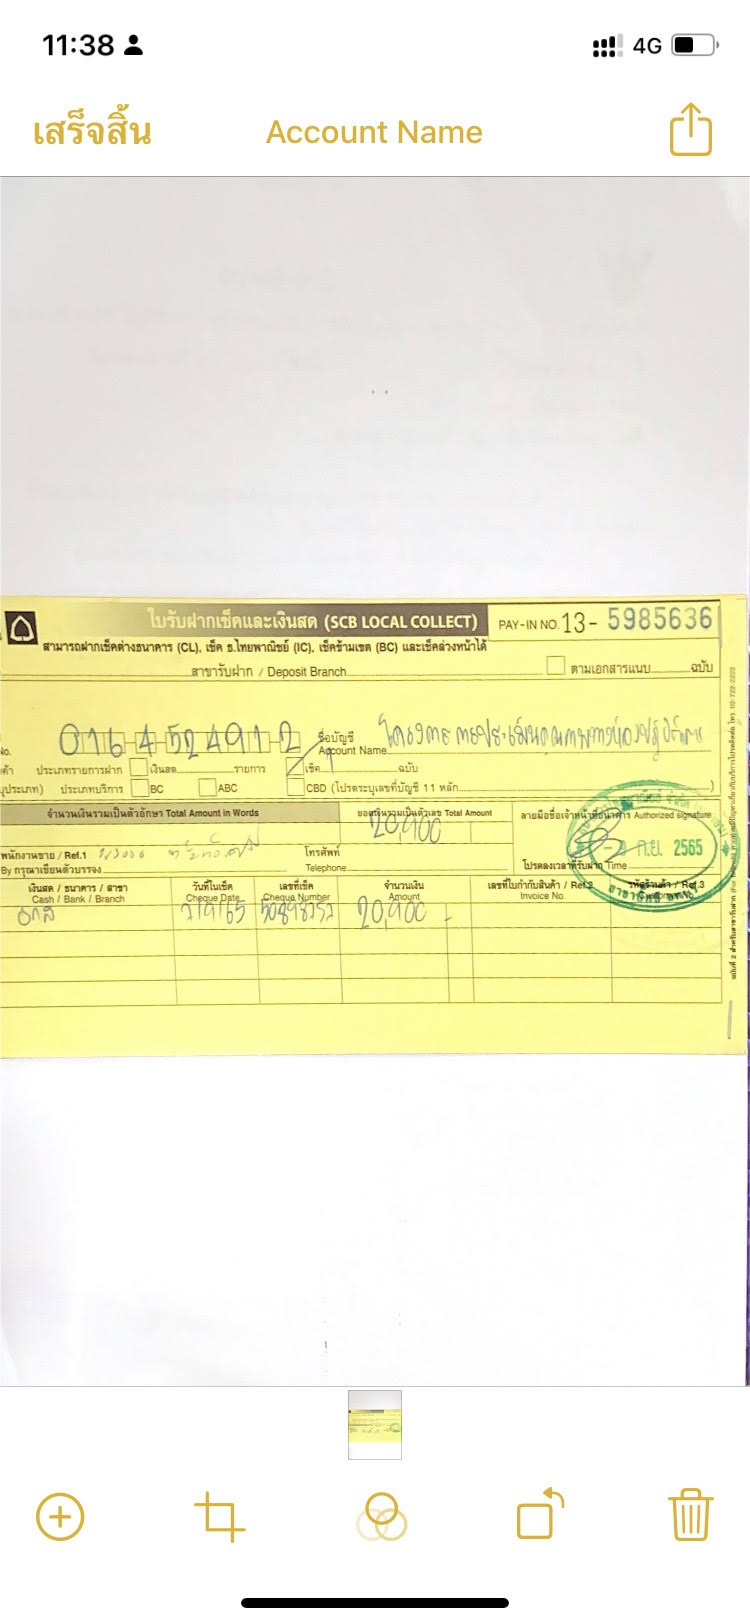 11:38
4G
เสร็จสิ้น
Account Name
ใบรับฝากเช็คและเงินสด (SCB LOCAL COLLECT)
PAY-IN NO. 13- 5985636
สามารถฝากเช็คต่างธนาคาร (CL), เช็ค ธ.ไทยพาณิชย์ (IC), เช็คข้ามเขต (BC) และเช็คล่วงหน้าได้
สาขารับฝาก / Deposit Branch
ตามเอกสารแนบ ฉบับ
No. 016-4-52491-2
ชื่อบัญชี
Account Name
ประเภทรายการฝาก เงินสด รายการ เช็ค ฉบับ
ประเภทบริการ BC ABC CBD (โปรดระบุเลขที่บัญชี 11 หลัก )
จำนวนเงินรวมเป็นตัวอักษร Total Amount in Words
ยอดเงินรวมเป็นตัวเลข Total Amount
20,900
ลายมือชื่อเจ้าหน้าที่ธนาคาร Authorized signature
พนักงานขาย / Ref.1
โทรศัพท์
Telephone
By กรุณาเขียนตัวบรรจง
2 ก.ย. 2565
โปรดลงเวลาที่รับฝาก Time
เงินสด / ธนาคาร / สาขา
Cash / Bank / Branch
วันที่ในเช็ค
Cheque Date
เลขที่เช็ค
Cheque Number
จำนวนเงิน
Amount
เลขที่ใบกำกับสินค้า / Ref.2
Invoice No.
รหัสร้านค้า / Ref.3
ธกส 2/9/65 20,900 -